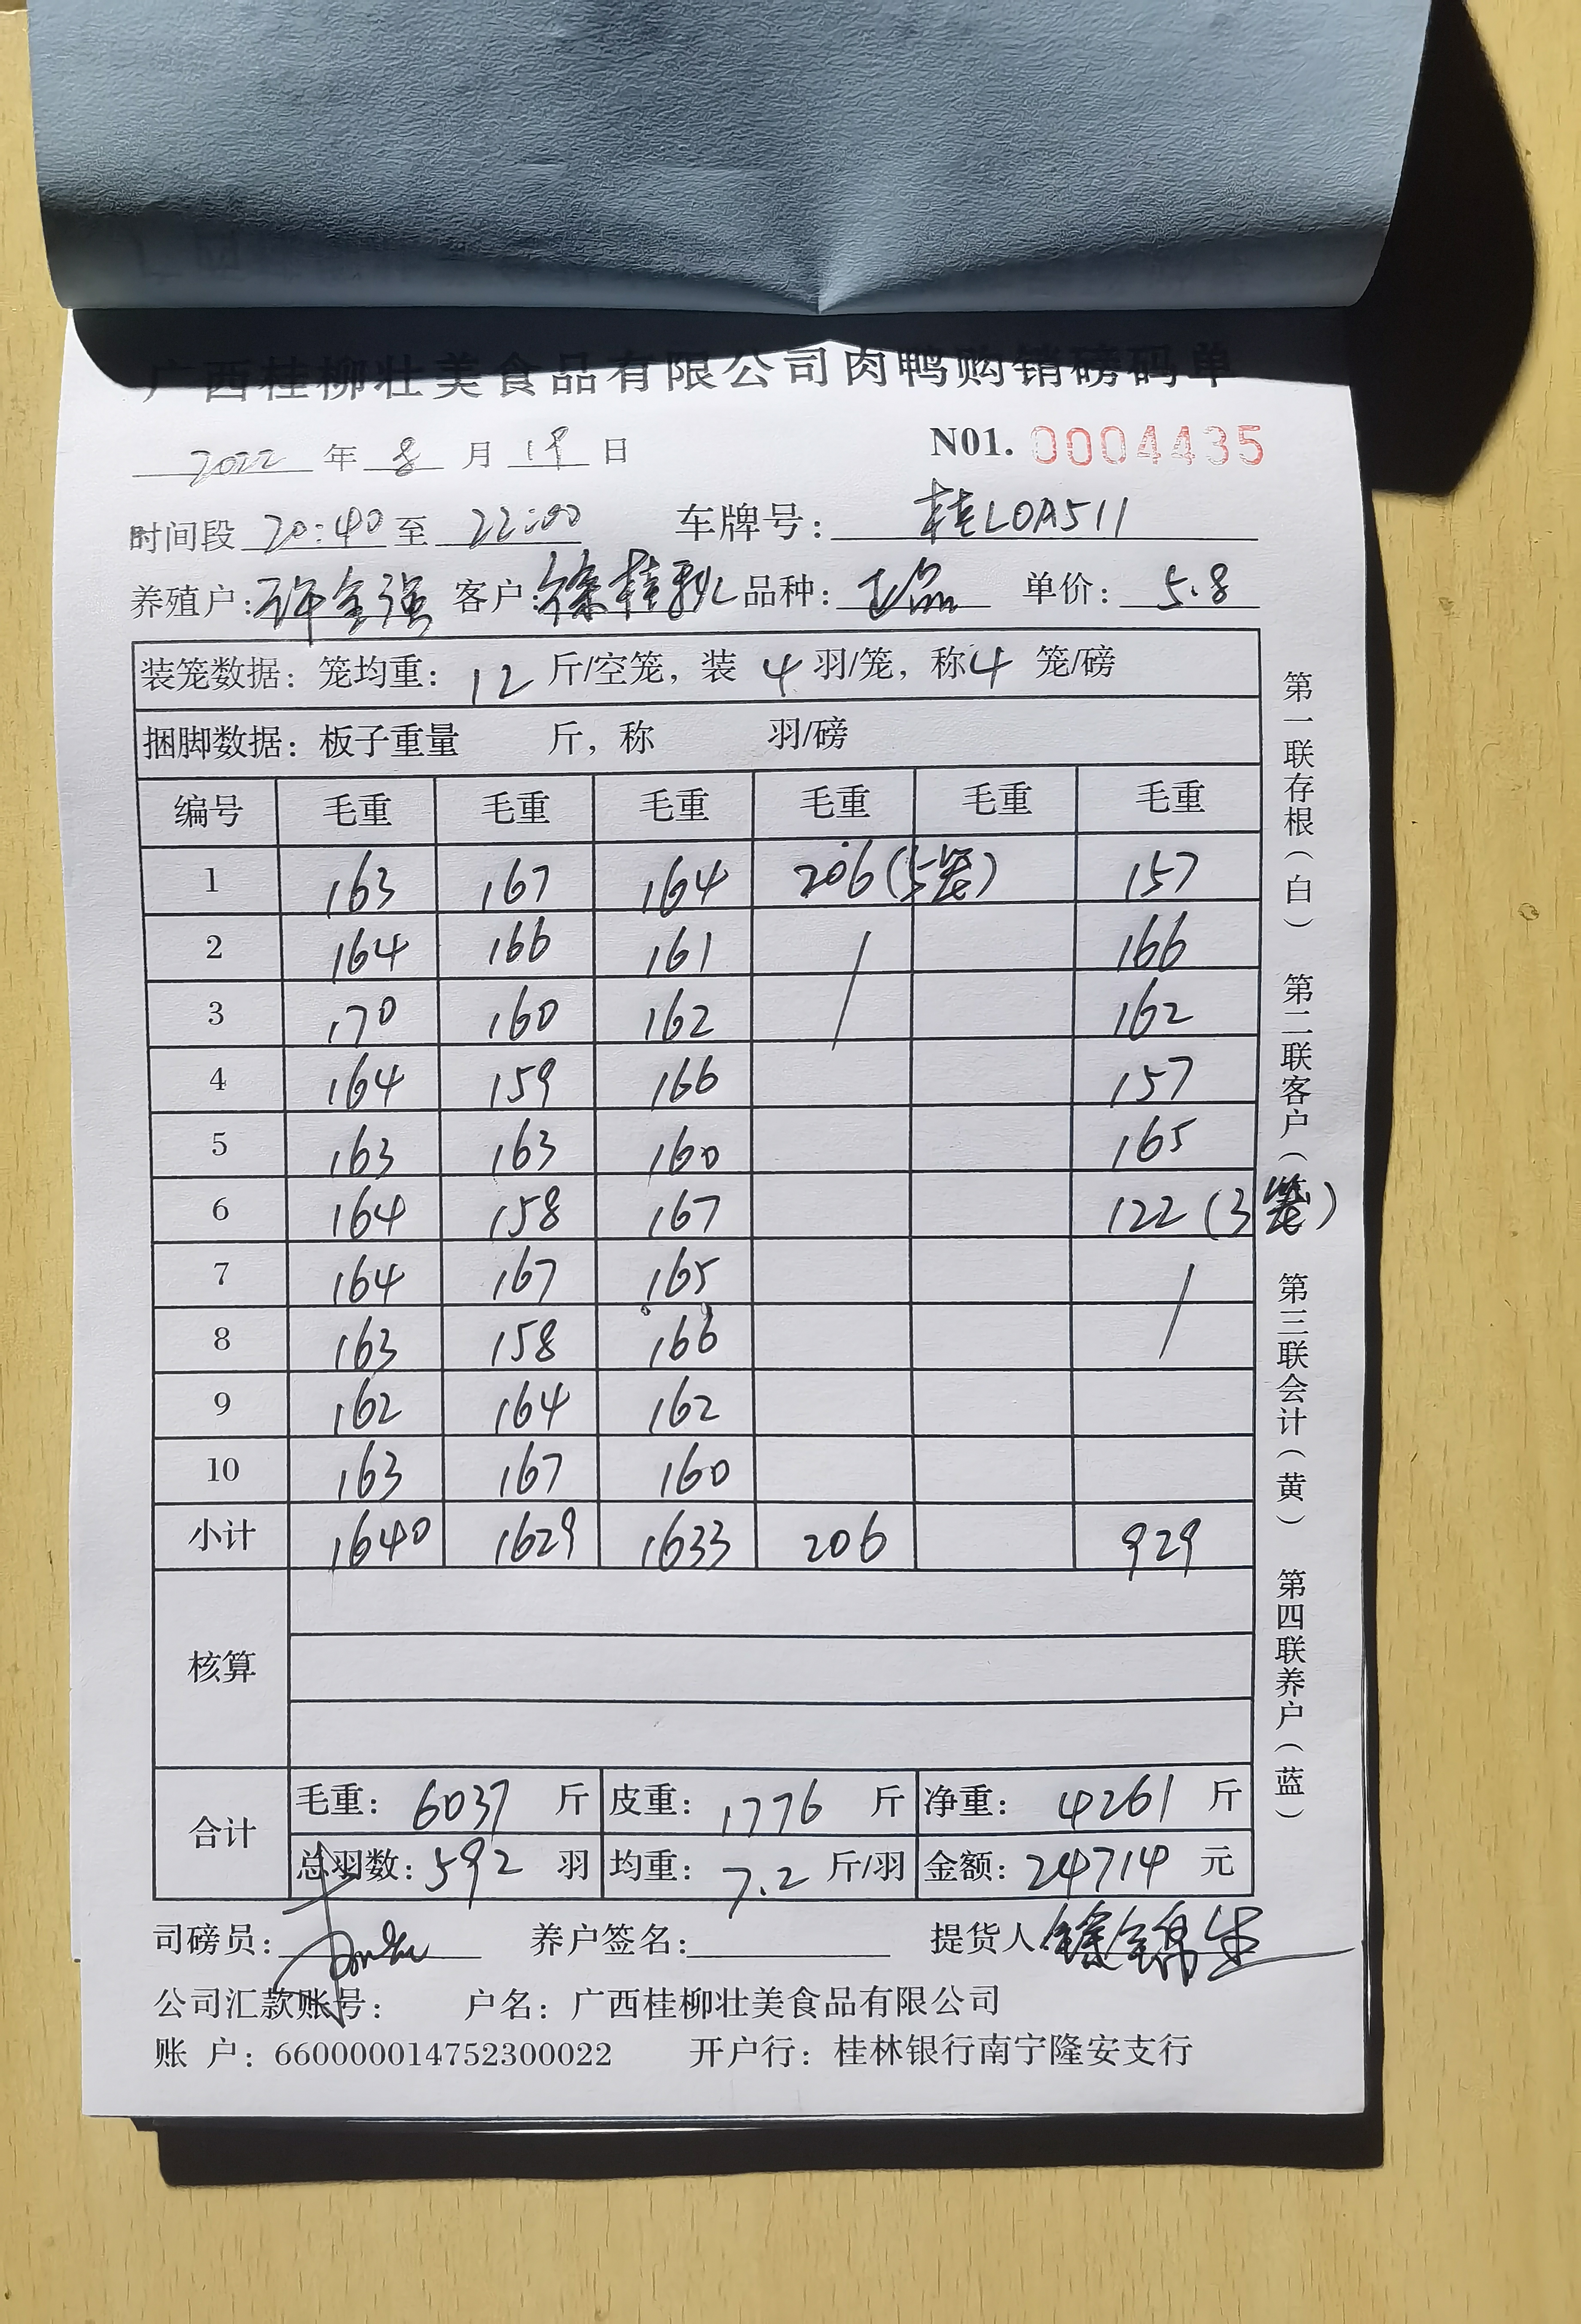 广西桂柳壮美食品有限公司肉鸭购销磅码单
2022 年 8 月 19 日 N01. 0004435
时间段 20:40 至 22:00 车牌号: 桂L0A511
养殖户: 许金强 客户: 徐桂秋 品种: 单价: 5.8
装笼数据: 笼均重: 12 斤/空笼, 装 4 羽/笼, 称 4 笼/磅
捆脚数据: 板子重量 斤, 称 羽/磅
编号 毛重 毛重 毛重 毛重 毛重 毛重
1 163 167 164 206(5笼) 157
2 164 166 161 / 166
3 170 160 162 162
4 164 159 166 157
5 163 163 160 165
6 164 158 167 122(3笼)
7 164 167 165 /
8 163 158 166
9 162 164 162
10 163 167 160
小计 1640 1629 1633 206 929
核算
合计 毛重: 6037 斤 皮重: 1776 斤 净重: 4261 斤
总羽数: 592 羽 均重: 7.2 斤/羽 金额: 24714 元
司磅员: 养户签名: 提货人
公司汇款账号: 户名: 广西桂柳壮美食品有限公司
账 户: 660000014752300022 开户行: 桂林银行南宁隆安支行
第一联存根(白) 第二联客户( 第三联会计(黄) 第四联养户(蓝)